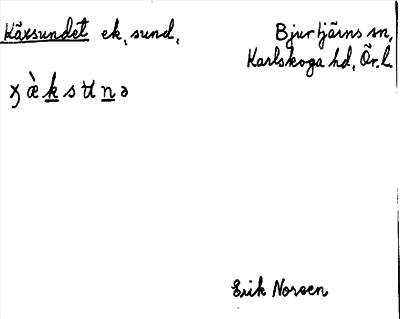 Käxsundet ek, sund,
Bjurtjärns sn,
Karlskoga hd, Ör. l.
Erik Noreen